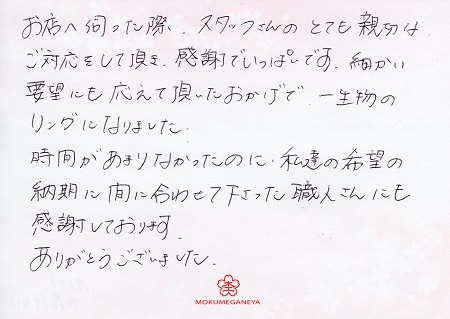 お店へ伺った際、スタッフさんのとても親切な
ご対応をして頂き、感謝でいっぱいです。細かい
要望にも応えて頂いたおかげで、一生物の
リングになりました。
時間があまりなかったのに、私達の希望の
納期に間に合わせて下さった職人さんにも
感謝しております。
ありがとうございました。
MOKUMEGANEYA